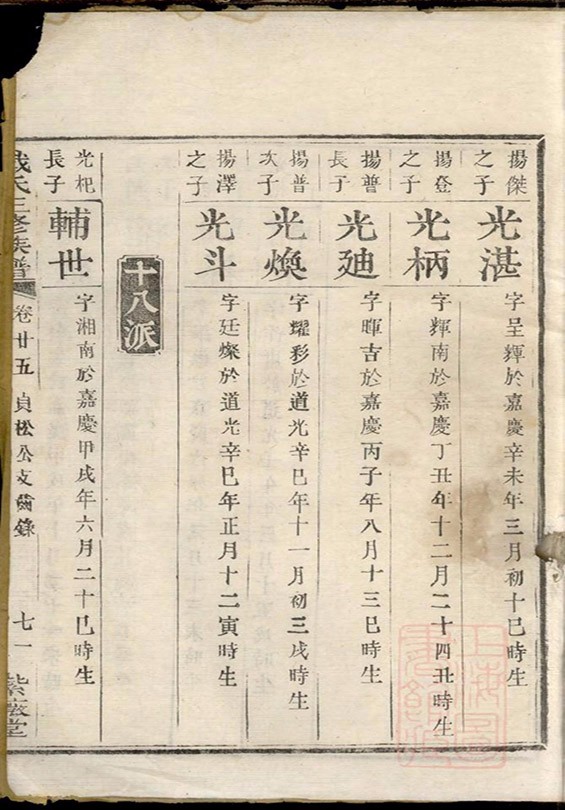 揚傑之子
光湛
字呈輝於嘉慶辛未年三月初十巳時生
揚登之子
光柄
字輝南於嘉慶丁丑年十二月二十四丑時生
揚普長子
光廸
字暉吉於嘉慶丙子年八月十三巳時生
揚普次子
光煥
字耀彩於道光辛巳年十一月初三戌時生
揚澤之子
光斗
字廷燦於道光辛巳年正月十二寅時生
十八派
光杷長子
輔世
字湘南於嘉慶甲戌年六月二十巳時生
氏三修族譜
卷廿五
貞松公支齒錄
七一
紫蔭堂
上海圖書館藏